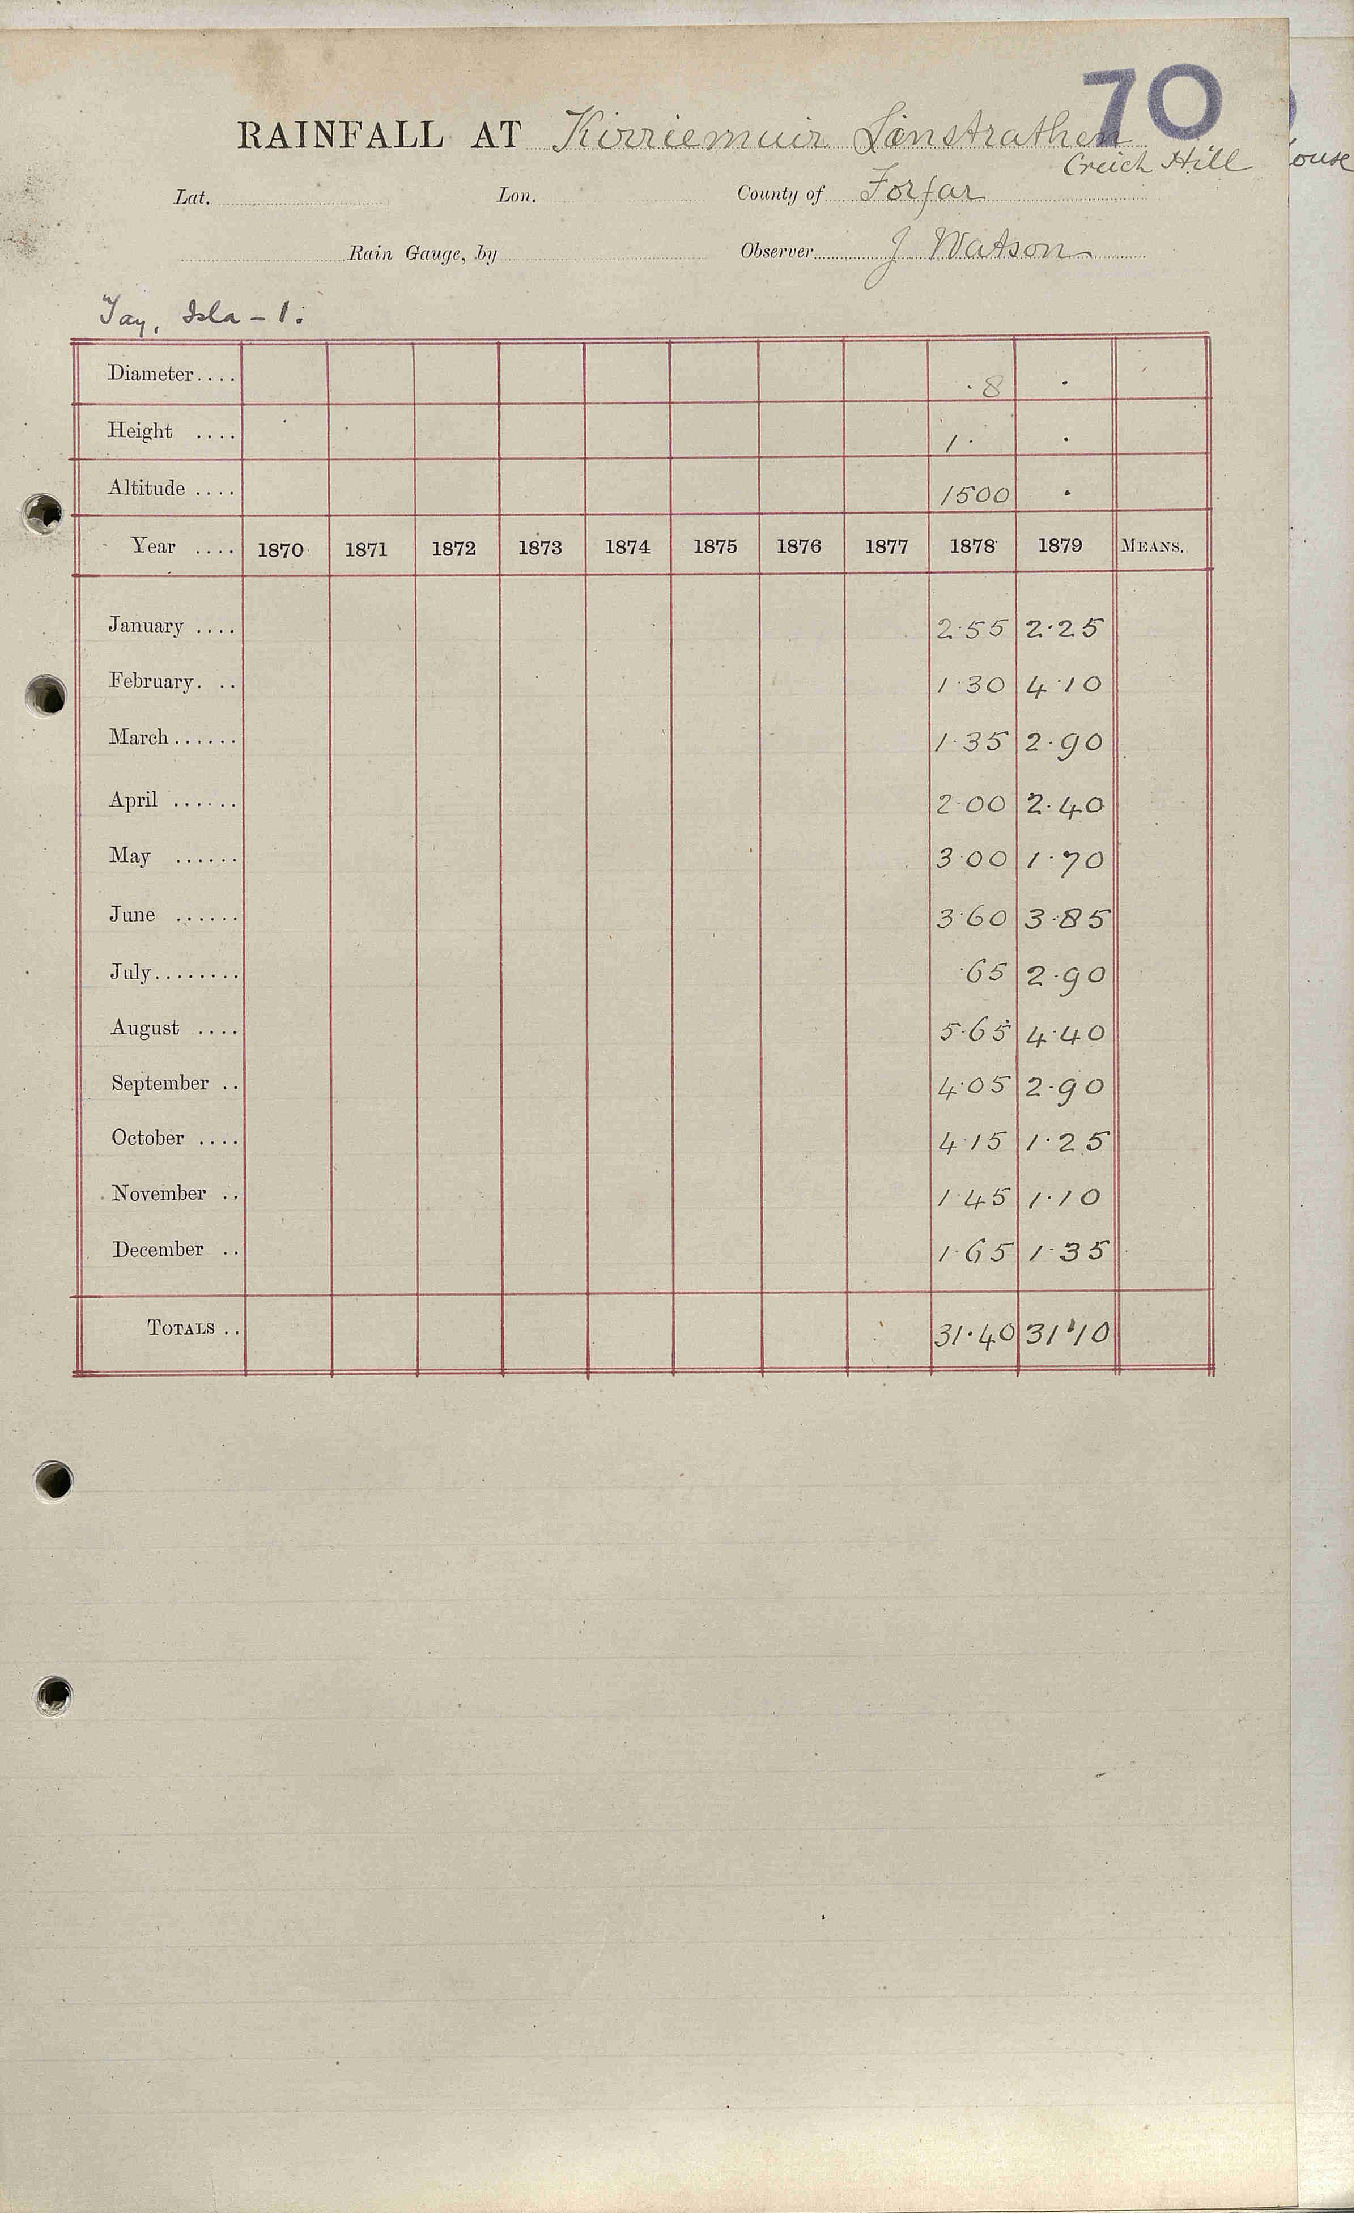 70
RAINFALL AT Kirriemuir Linstrathen
Creich Hill
ouse
Lat. Lon. County of Forfar
Rain Gauge, by Observer J Watson
Tay, Isla - 1.
Diameter.... ·8 ·
Height .... 1· ·
Altitude .... 1500 ·
Year .... 1870 1871 1872 1873 1874 1875 1876 1877 1878 1879 MEANS.
January .... 2·55 2·25
February. .. 1·30 4·10
March...... 1·35 2·90
April ...... 2·00 2·40
May ...... 3·00 1·70
June ...... 3·60 3·85
July........ ·65 2·90
August .... 5·65 4·40
September .. 4·05 2·90
October .... 4·15 1·25
November .. 1·45 1·10
December .. 1·65 1·35
TOTALS .. 31·40 31·10